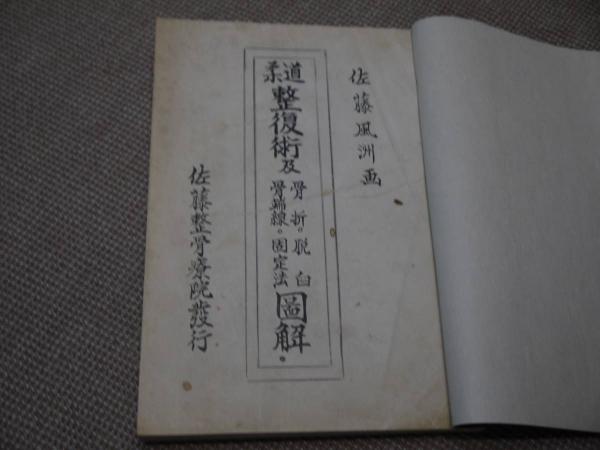 佐藤風洲画
柔道整復術及骨折。脱臼骨端線。固定法圖解。
佐藤整骨療院發行